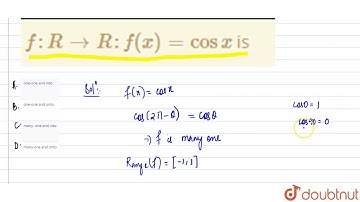 f: R → R: f(x) = cos x is
A. one-one and into
B. one-one and onto
C. many-one and into
D. many-one and onto
Solⁿ:
f(x) = cos x
cos(2π-θ) = cosθ
⇒ f is many one
Range(f) = [-1,1]
cos0 = 1
= 0
doubtnut